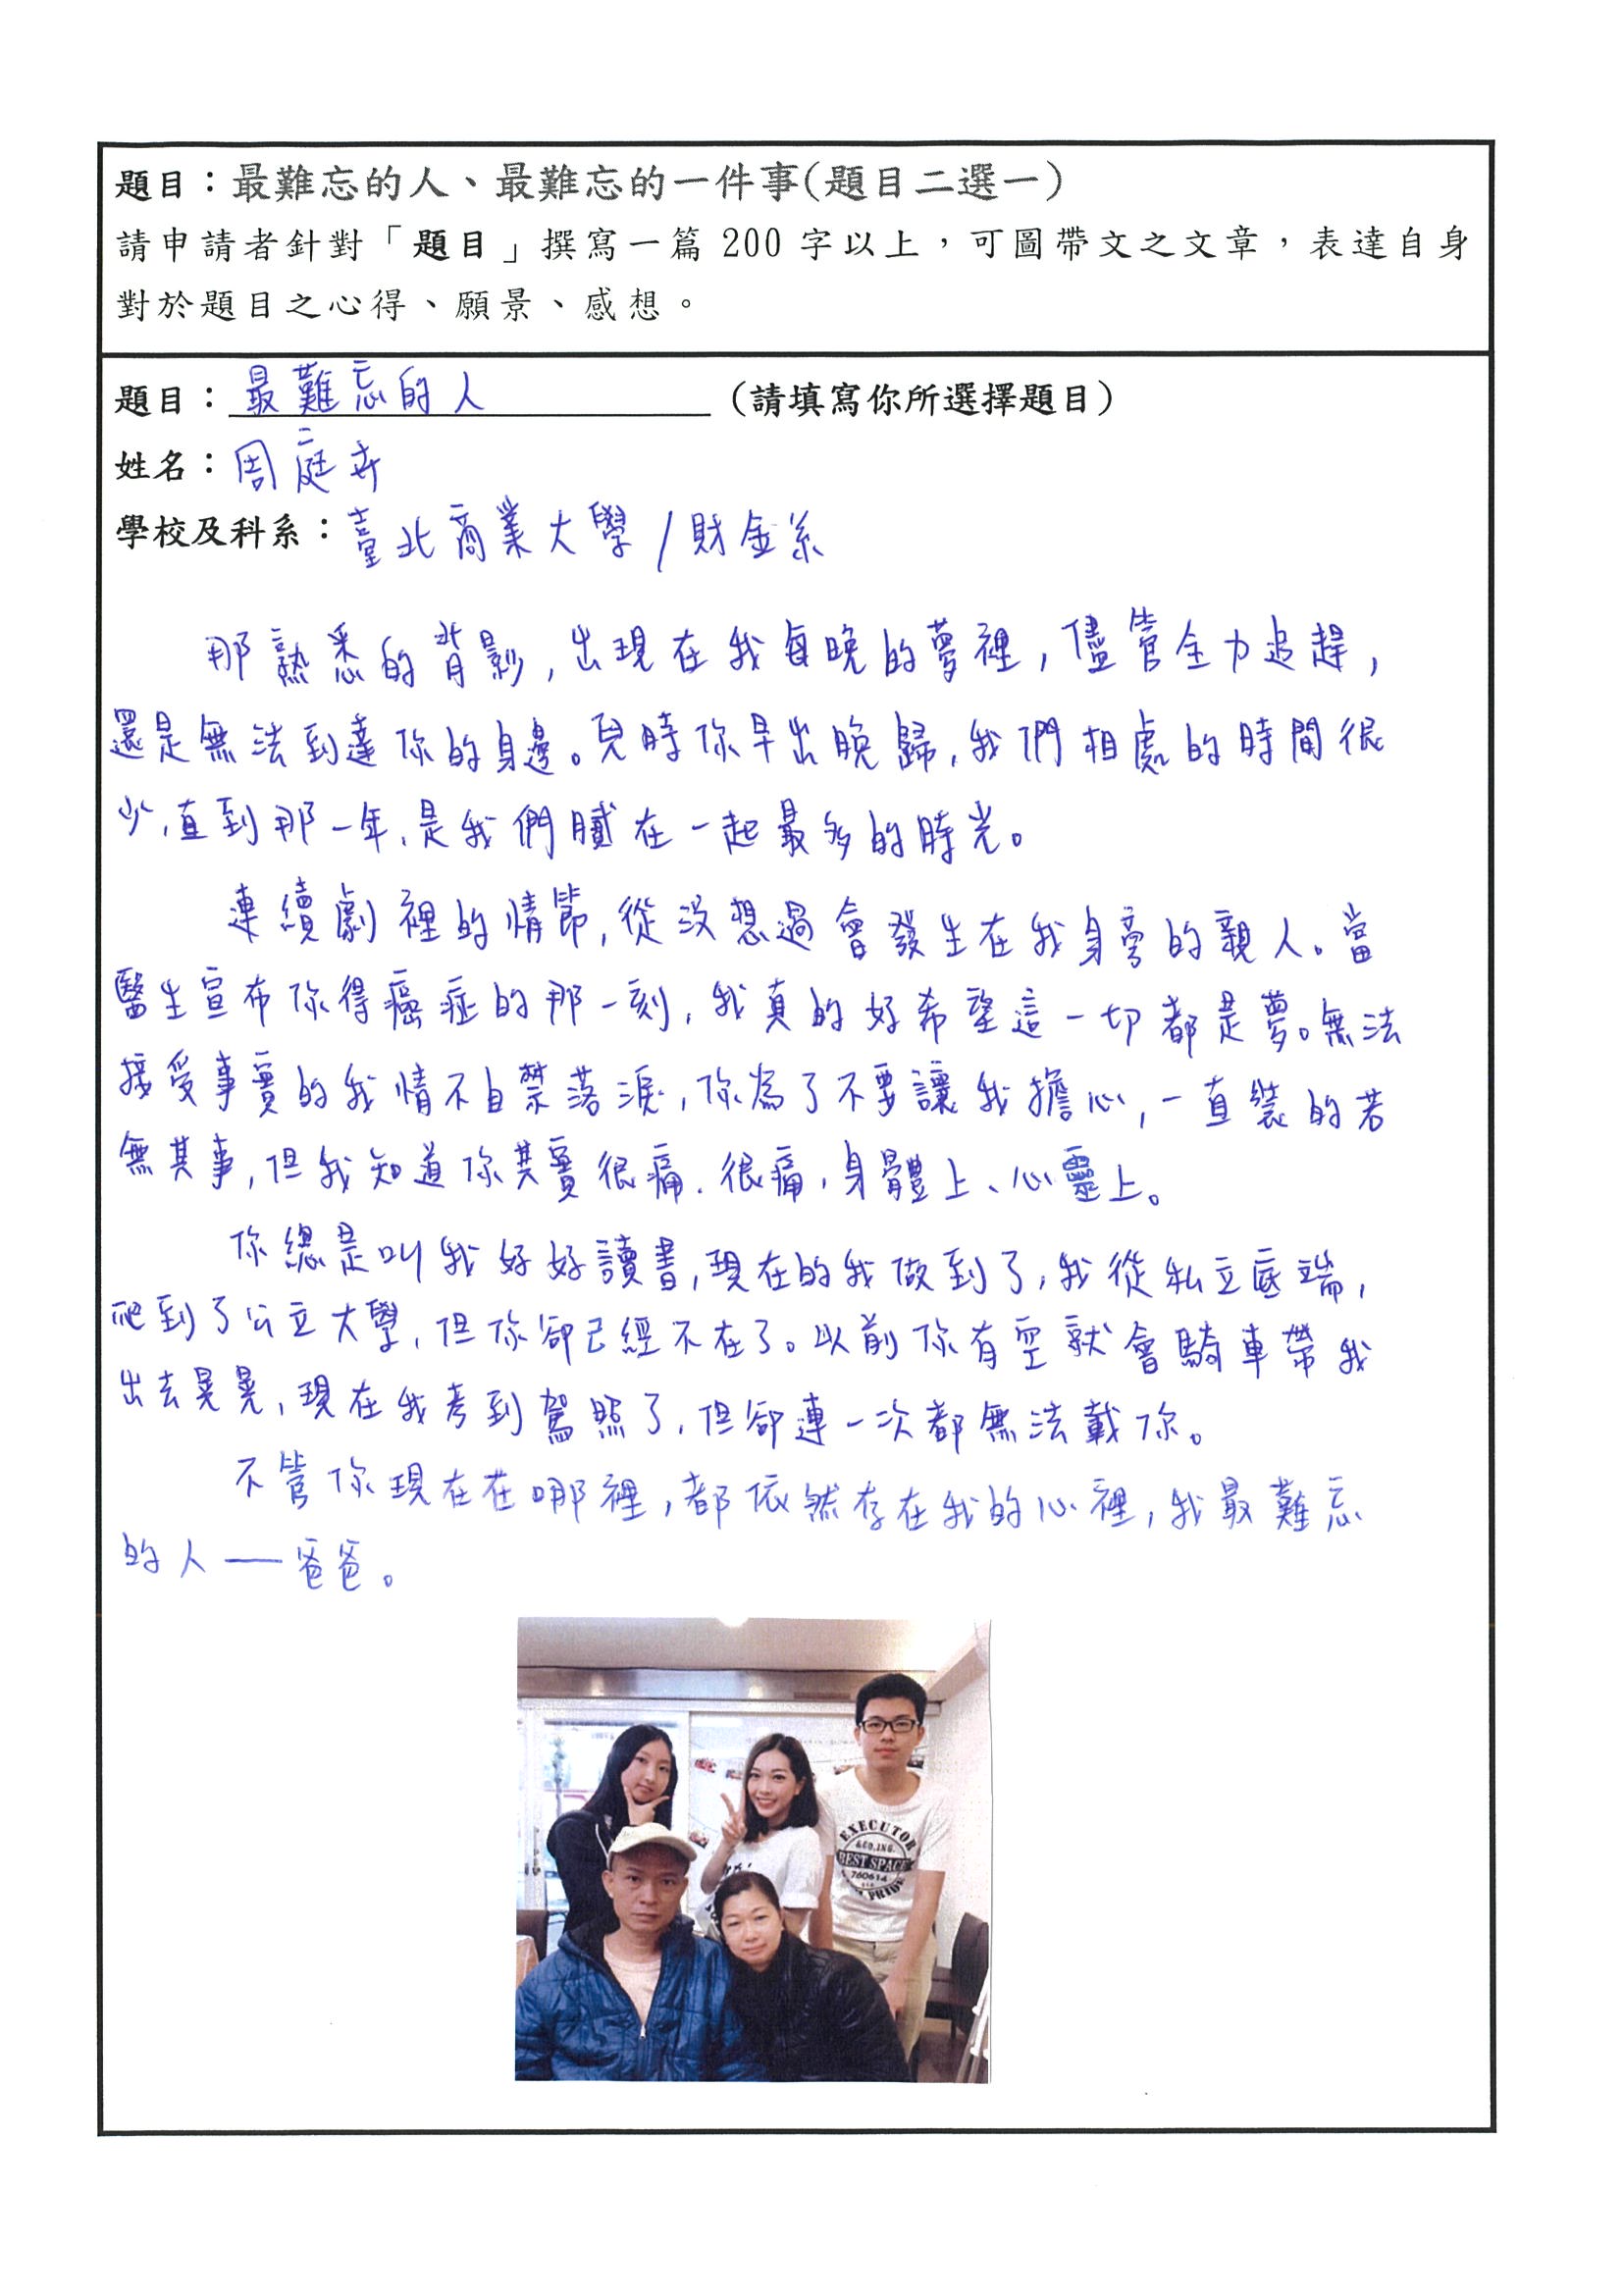 題目：最難忘的人、最難忘的一件事(題目二選一)
請申請者針對「題目」撰寫一篇 200 字以上，可圖帶文之文章，表達自身
對於題目之心得、願景、感想。
題目：最難忘的人 (請填寫你所選擇題目)
姓名：周庭卉
學校及科系：臺北商業大學/財金系
那熟悉的背影，出現在我每晚的夢裡，儘管全力追趕，
還是無法到達你的身邊。兒時你早出晚歸，我們相處的時間很
少，直到那一年，是我們膩在一起最多的時光。
連續劇裡的情節，從沒想過會發生在我身旁的親人。當
醫生宣布你得癌症的那一刻，我真的好希望這一切都是夢。無法
接受事實的我情不自禁落淚，你為了不要讓我擔心，一直裝的若
無其事，但我知道你其實很痛、很痛，身體上、心靈上。
你總是叫我好好讀書，現在的我做到了，我從私立底端，
爬到了公立大學，但你卻已經不在了。以前你有空就會騎車帶我
出去晃晃，現在我考到駕照了，但卻連一次都無法載你。
不管你現在在哪裡，都依然存在我的心裡，我最難忘
的人——爸爸。
EXECUTOR
&CO,ING.
BEST SPACE
760614
PRIDE